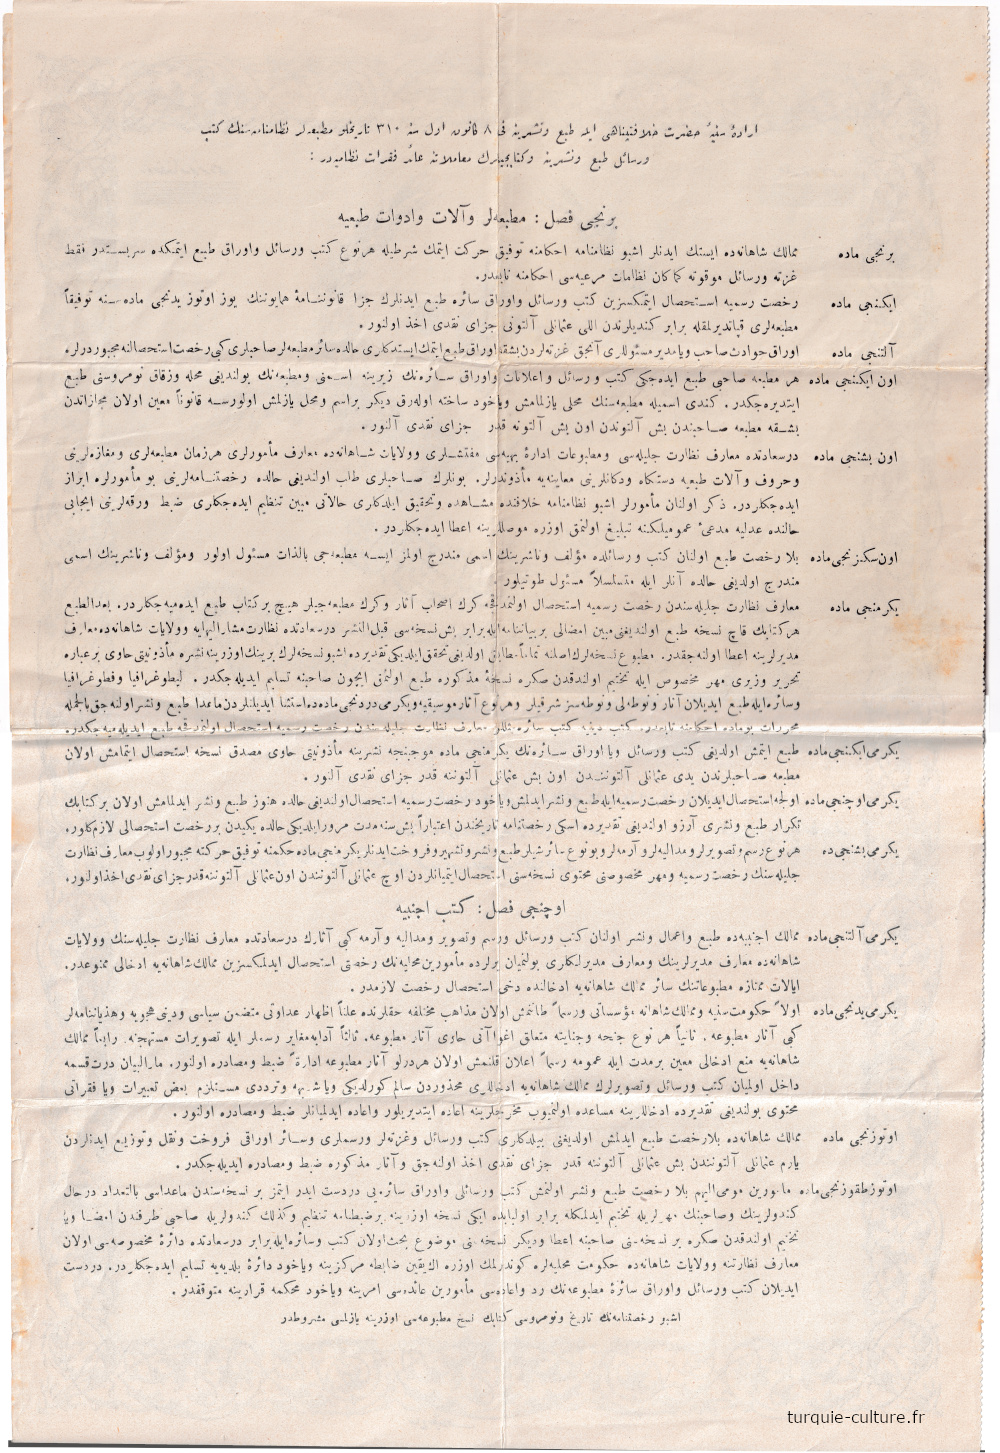 ارادۀ سنیۀ حضرت خلافتپناهی ایله طبع ونشرینه فی ٨ کانون اول سنه ٣١٠ تاریخلو مطبعه‌لر نظامنامه‌سنك کتب
ورسائل طبع ونشرینه وکتابجیلرك معاملاتنه عائد فقرات نظامیه‌در :
برنجی فصل : مطبعه‌لر وآلات وادوات طبعیه
برنجی ماده ممالك شاهانه‌ده ایستك ایدنلر اشبو نظامنامه احکامنه توفیق حرکت ایتمك شرطیله هرنوع کتب ورسائل واوراق طبع ایتمکده سربستدر فقط
غزته ورسائل موقوته کماکان نظامات مرعیه‌سی احکامنه تابعدر.
ایکنجی ماده رخصت رسمیه استحصال ایتمکسزین کتب ورسائل واوراق سائره طبع ایدنلرك جزا قانوننامۀ همایونینك یوز اوتوز یدنجی ماده‌سنه توفیقاً
مطبعه‌لری قپاندیرلمقله برابر کندیلرندن اللی عثمانلی آلتونی جزای نقدی اخذ اولنور.
آلتنجی ماده اوراق حوادث صاحب ویا مدیر مسئوللری آنجق غزته‌لردن بشقه اوراق طبع ایتمك ایستدکلری حالده سائر مطبعه‌لر صاحبلری کبی رخصت استحصالنه مجبوردرلر.
اون ایکنجی ماده هر مطبعه صاحبی طبع ایده‌جکی کتب ورسائل واعلانات واوراق سائره‌نك زیرینه اسمنی ومطبعه‌نك بولندیغی محله وزقاق نومروسنی طبع
ایتدیره‌جکدر. کندی اسمیله مطبعه‌سنك محلی یازلمامش ویاخود ساخته اوله‌رق دیکر براسم ومحل یازلمش اولورسه قانوناً معین اولان مجازاتدن
بشقه مطبعه صاحبندن بش آلتوندن اون بش آلتونه قدر جزای نقدی آلنور.
اون بشنجی ماده درسعادتده معارف نظارت جلیله‌سی ومطبوعات ادارۀ بهیه‌سی مفتشلری وولایات شاهانه‌ده معارف مأمورلری هرزمان مطبعه‌لری ومغازه‌لرینی
وحروف وآلات طبعیه دستکاه ودکانلرینی معاینه‌یه مأذوندرلر. بونلرك صاحبلری طلب اولندیغی حالده رخصتنامه‌لرینی بو مأمورلره ابراز
ایده‌جکلردر. ذکر اولنان مأمورلر اشبو نظامنامه خلافنده مشاهده وتحقیق ایلدکلری حالاتی مبین تنظیم ایده‌جکلری ضبط ورقه‌لرینی ایجابی
حالنده عدلیه مدعیٔ عمومیلکنه تبلیغ اولنمق اوزره موصللرینه اعطا ایده‌جکلردر.
اون سکزنجی ماده بلا رخصت طبع اولنان کتب ورسائلده مؤلف وناشرینك اسمی مندرج اولمز ایسه مطبعه‌جی بالذات مسئول اولور ومؤلف وناشرینك اسمی
مندرج اولدیغی حالده آنلر ایله متسلسلاً مسئول طوتیلور.
یکرمنجی ماده معارف نظارت جلیله‌سندن رخصت رسمیه استحصال اولنمدقجه کرك اصحاب آثار وکرك مطبعه‌جیلر هیچ برکتاب طبع ایده‌میه‌جکلردر. بعدالطبع
هرکتابك قاچ نسخه طبع اولندیغنی مبین امضالی بربیاننامه ایله برابر بش نسخه‌سی قبل النشر درسعادتده نظارت مشارالیهایه وولایات شاهانه‌ده معارف
مدیرلرینه اعطا اولنه‌جقدر. مطبوع نسخه‌لرك اصلنه تماماً مطابق اولدیغی تحقق ایلدیکی تقدیرده اشبو نسخه‌لرك برینك اوزرینه نشره مأذونیتی حاوی برعباره
تحریر وزیری مهر مخصوص ایله تختیم اولندقدن صکره نسخۀ مذکوره طبع اولنمق ایچون صاحبنه تسلیم ایدیله‌جکدر. لیطوغرافیا وفطوغرافیا
وسائره ایله طبع ایدیلان آثار ونوطه‌لی ونوطه‌سز شرقیلر وهرنوع آثار موسیقیه ویکرمی دردنجی ماده‌ده استثنا ایدیلنلردن ماعدا طبع ونشر اولنه‌جق بالجمله
محررات بوماده احکامنه تابعدر. کتب دینیه کتب سائره مثللو معارف نظارت جلیله‌سندن رخصت رسمیه استحصال اولنمدقجه طبع ایدیله‌میه‌جکدر.
یکرمی ایکنجی ماده طبع ایتمش اولدیغی کتب ورسائل ویا اوراق سائره‌نك یکرمنجی ماده موجبنجه نشرینه مأذونیتی حاوی مصدق نسخه استحصال ایتمامش اولان
مطبعه صاحبلرندن یدی عثمانلی آلتونندن اون بش عثمانلی آلتوننه قدر جزای نقدی آلنور.
یکرمی اوچنجی ماده اولجه استحصال ایدیلان رخصت رسمیه ایله طبع ونشر ایدلمش ویاخود رخصت رسمیه استحصال اولندیغی حالده هنوز طبع ونشر ایدلمامش اولان برکتابك
تکرار طبع ونشری آرزو اولندیغی تقدیرده اسکی رخصتنامه تاریخندن اعتباراً بش سنه مدت مرور ایلدیکی حالده یکیدن بررخصت استحصالی لازم کلور.
یکرمی بشنجی ده هرنوع رسم وتصویر لر ومدالیه‌لر وآرمه‌لر وبونوع سائر شیلر طبع ونشر وتشهیر وفروخت ایدنلر یکرمنجی ماده حکمنه توفیق حرکته مجبور اولوب معارف نظارت
جلیله‌سنك رخصت رسمیه ومهر مخصوصنی محتوی نسخه‌سنی استحصال ایتمیانلردن اوچ عثمانلی آلتونندن اون عثمانلی آلتوننه قدر جزای نقدی اخذ اولنور.
اوچنجی فصل : کتب اجنبیه
یکرمی آلتنجی ماده ممالك اجنبیه‌ده طبع واعمال ونشر اولنان کتب ورسائل ورسم وتصویر ومدالیه وآرمه کبی آثارك درسعادتده معارف نظارت جلیله‌سنك وولایات
شاهانه‌ده معارف مدیرلرینك ومعارف مدیرلکلری بولنمیان یرلرده مأمورین محلیه‌نك رخصتی استحصال ایدلمکسزین ممالك شاهانه‌یه ادخالی ممنوعدر.
ایالات ممتازه مطبوعاتنك سائر ممالك شاهانه‌یه ادخالنده دخی استحصال رخصت لازمدر.
یکرمی یدنجی ماده اولاً حکومت سنیه وممالك شاهانه مؤسساتی ورسماً طانمش اولان مذاهب مختلفه حقلرنده علناً اظهار عداوتی متضمن سیاسی ودینی هجویه وهذیاننامه‌لر
کبی آثار مطبوعه. ثانیاً هر نوع جنحه وجنایته متعلق اغواآتی حاوی آثار مطبوعه. ثالثاً آدابه مغایر رسملر ایله تصویرات مستهجنه. رابعاً ممالك
شاهانه‌یه منع ادخالی معین برمدت ایله عمومه رسماً اعلان قلنمش اولان هردرلو آثار مطبوعه ادارةً ضبط ومصادره اولنور. مارالبیان درت قسمه
داخل اولمیان کتب ورسائل وتصویرلرك ممالك شاهانه‌یه ادخاللری محذوردن سالم کورلدیکی ویا شبهه وترددی مستلزم بعض تعبیرات ویا فقراتی
محتوی بولندیغی تقدیرده ادخاللرینه مساعده اولنمیوب مخرجلرینه اعاده ایتدیریلور واعاده ایدلمیانلر ضبط ومصادره اولنور.
اوتوزنجی ماده ممالك شاهانه‌ده بلارخصت طبع ایدلمش اولدیغنی بیلدکلری کتب ورسائل وغزته‌لر ورسملری وسائر اوراقی فروخت ونقل وتوزیع ایدنلردن
یارم عثمانلی آلتونندن بش عثمانلی آلتوننه قدر جزای نقدی اخذ اولنه‌جق وآثار مذکوره ضبط ومصادره ایدیله‌جکدر.
اوتوز طقوزنجی ماده مأمورین مومی‌الیهم بلا رخصت طبع ونشر اولنمش کتب ورسائلی واوراق سائره‌یی دردست ایدر ایتمز بر نسخه‌سندن ماعداسی بالتعداد درحال
کندولرینك وصاحبنك مهرلریله تختیم ایدلمکله برابر اولبابده ایکی نسخه اوزرینه برضبطنامه تنظیم وکذلك کندولریله صاحبی طرفندن امضا ویا
تختیم اولندقدن صکره بر نسخه‌سنی صاحبنه اعطا ودیکر نسخه‌سنی موضوع بحث اولان کتب وسائره ایله برابر درسعادتده دائرۀ مخصوصه‌سی اولان
معارف نظارتنه وولایات شاهانه‌ده حکومت محلیه‌لره کوندرلمك اوزره اك یقین ضابطه مرکزینه ویاخود دائرۀ بلدیه‌یه تسلیم ایده‌جکلردر. دردست
ایدیلان کتب ورسائل واوراق سائرۀ مطبوعه‌نك رد واعاده‌سی مأمورین عائده‌سی امرینه ویاخود محکمه قرارینه متوقفدر.
اشبو رخصتنامه‌نك تاریخ ونومروسی کتابك نسخ مطبوعه‌سی اوزرینه یازلمسی مشروطدر
turquie-culture.fr